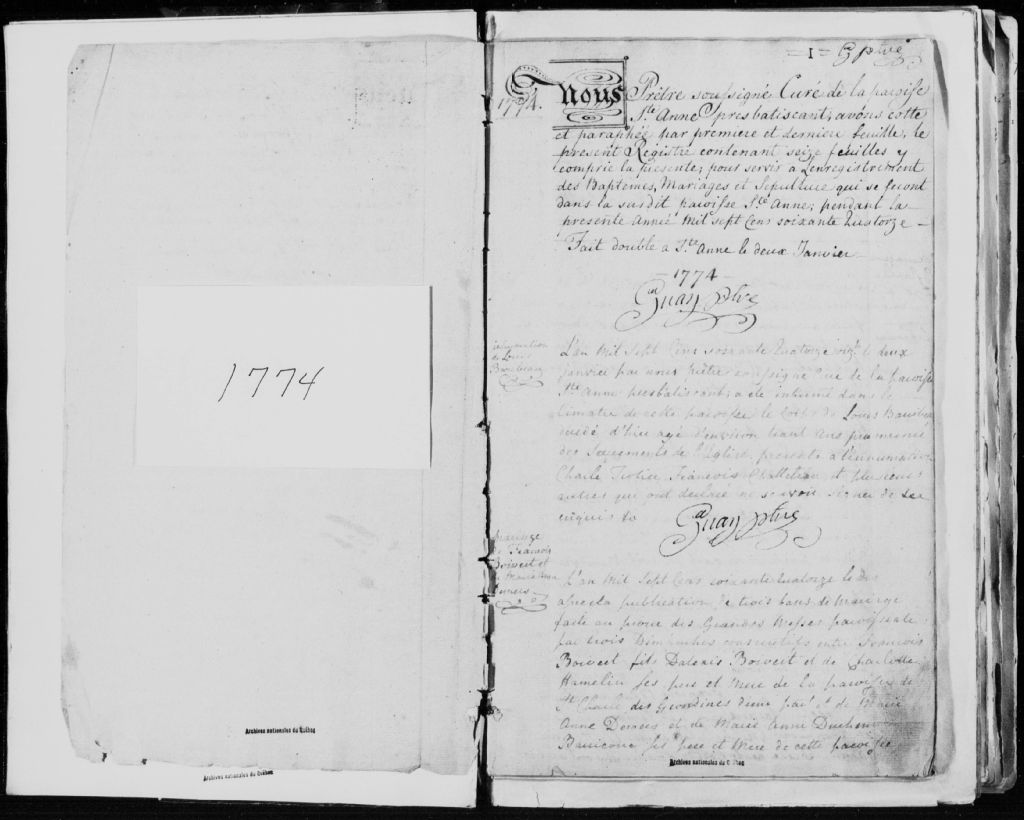 1774
Archives nationales du Québec
Archives nationales du Québec
= 1 =
1774.
Nous Prêtre soussigné Curé de la paroisse
Ste Anne presbatiscant, avons cotte
et paraphée par premiere et derniere feuille, le
present Registre contenant seize feuilles y
comprie la presente; pour servir a Lenregistrement
des Baptemes, Mariages et Sepulture qui se feront
dans la susdit paroisse Ste Anne; pendant la
presente Année mil sept Cens soixante Quatorze
Fait double a Ste Anne le deux Janvier
1774
Guay ptre
de Louis
L'an mil sept Cens soixante Quatorze le deux
janvier par nous prêtre soussigné Curé de la paroisse
Ste Anne presbatiscant, a été inhumé dans le
cimatre de cette paroisse le Corps de Louis
decedé d'hier agé d'environ ans
des Sacrements de l'Eglise, presents a l'innumation
Charle François et plusieurs
autres qui ont declaré ne savoir signer de ce
enquis
Guay ptre
Mariage
de François
Boivert et
de Marie Anne
L'an mil sept Cens soixante Quatorze le
apres la publication de trois bans de Mariage
faite au prone des Grandes Messes paroissiale
par trois Dimanches consecutifs entre François
Boivert fils Dalexis Boivert et de Charlotte
Hamelin ses pere et Mere de la paroisse de
St Charle des Grondines d'une part et de Marie
Anne et de Marie Anne
ses pere et Mere de cette paroisse
Archives nationales du Québec